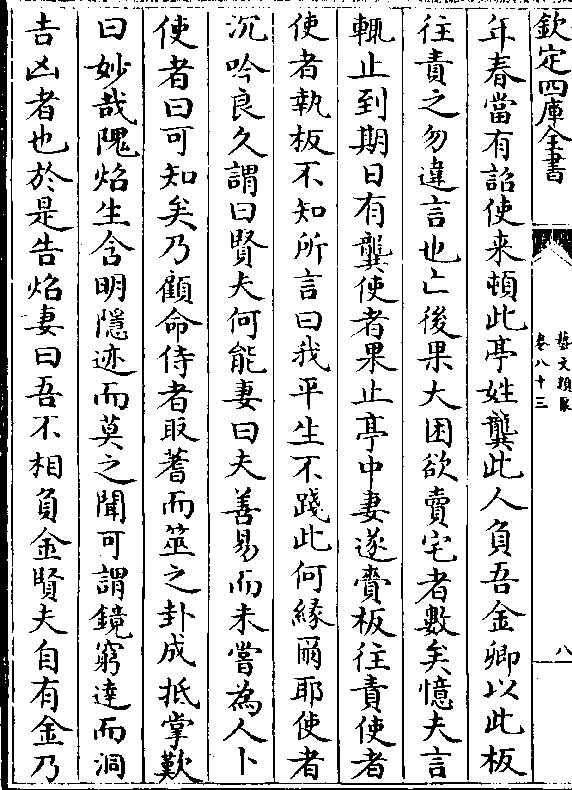 欽定四庫全書
藝文類聚
卷八十三
八
年春當有詔使来頓此亭姓龔此人負吾金卿以此板
往責之勿違言也亡後果大困欲賣宅者數矣憶夫言
輒止到期日有龔使者果止亭中妻遂賫板往責使者
使者執板不知所言曰我平生不踐此何緣爾耶使者
沉吟良久謂曰賢夫何能妻曰夫善易而未嘗為人卜
使者曰可知矣乃顧命侍者取蓍而筮之卦成抵掌歎
曰妙哉隗炤生含明隱迹而莫之聞可謂鏡窮達而洞
吉凶者也於是告炤妻曰吾不相負金賢夫自有金乃